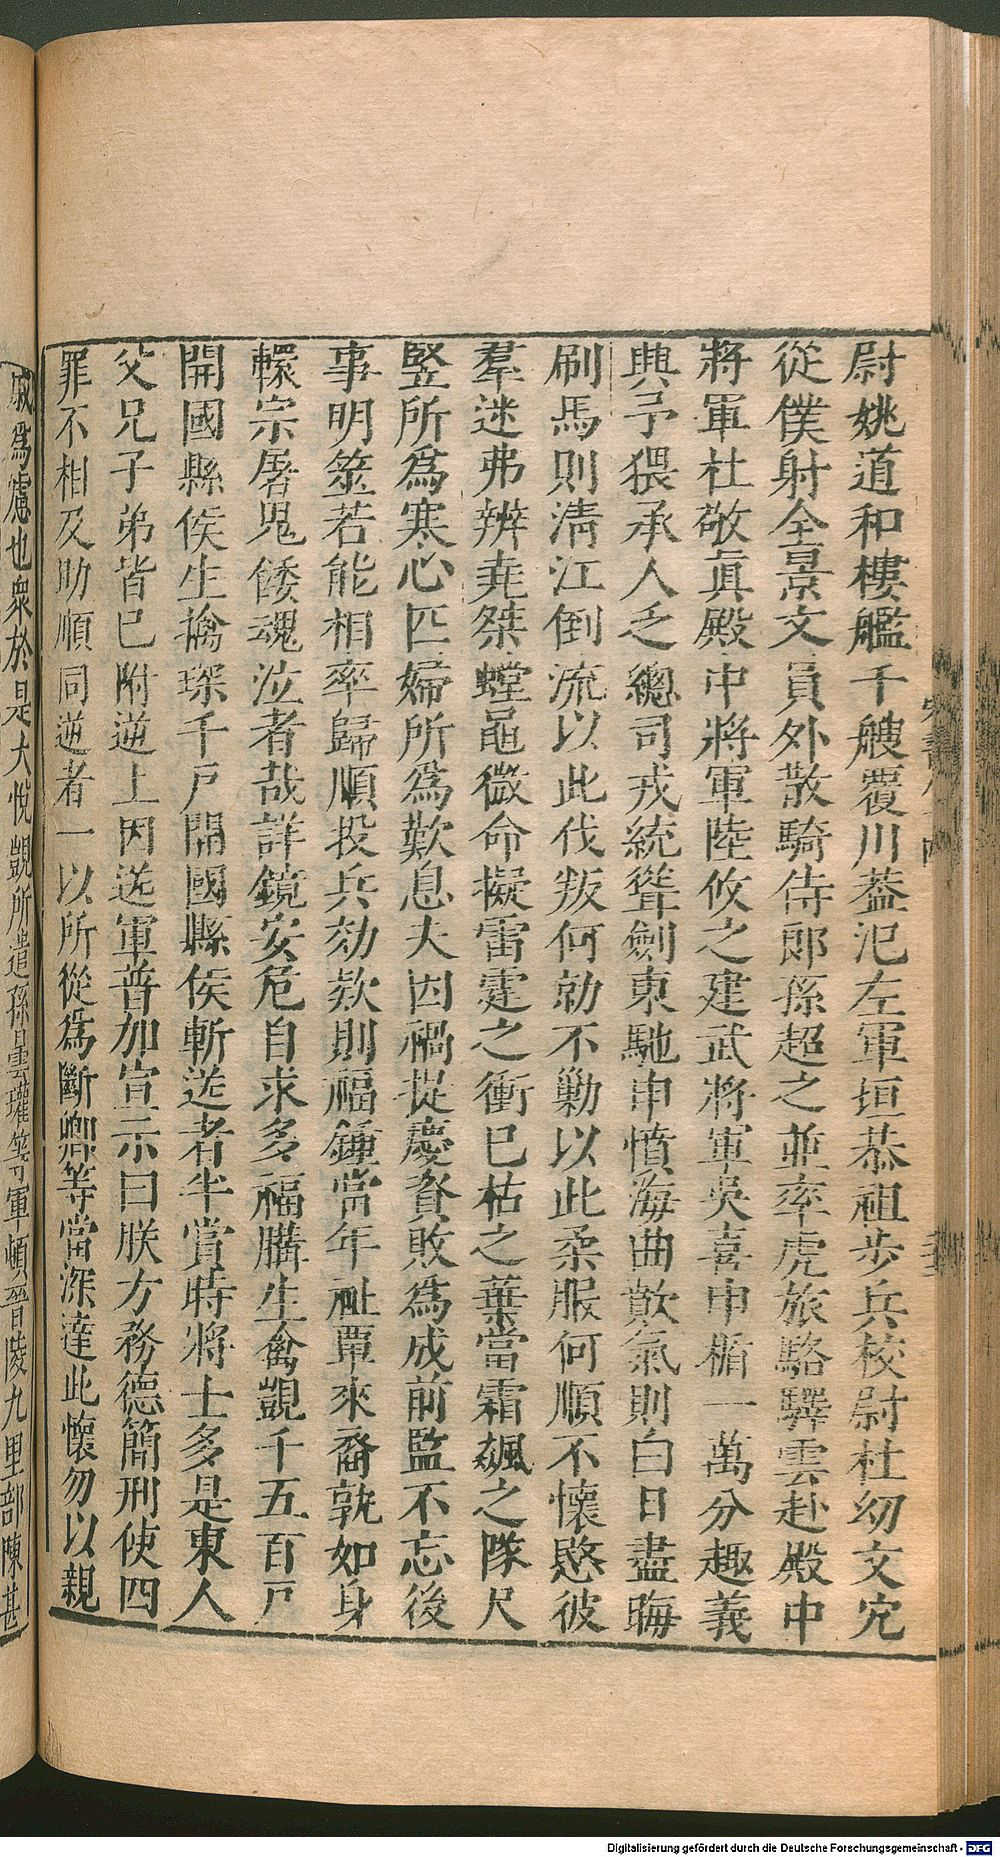 尉姚道和樓艦千艘覆川蓋汜左軍垣恭祖步兵校尉杜幼文宂
從僕射全景文員外散騎侍郎孫超之並率虎旅駱驛雲赴殿中
將軍杜敬眞殿中將軍陸攸之建武將軍吳喜申楯一萬分趣義
興予猥承人乏總司戎統聳劍東馳申憤海曲歊氣則白日盡晦
刷馬則淸江倒流以此伐叛何勍不勦以此柔服何順不懷愍彼
羣迷弗辨堯桀螳黽微命擬雷霆之衝已枯之葉當霜飆之隊尺
豎所爲寒心匹婦所爲歎息夫因禍提慶資敗爲成前監不忘後
事明筮若能相率歸順投兵効欵則福鍾當年祉覃來裔孰如身
轘宗屠鬼餒魂泣者哉詳鏡安危自求多福購生禽覬千五百戸
開國縣侯生擒琛千戸開國縣侯斬送者半賞時將士多是東人
父兄子弟皆已附逆上因送軍普加宣示曰朕方務德簡刑使四
罪不相及助順同逆者一以所從爲斷卿等當深達此懷勿以親
戚爲慮也衆於是大悅覬所遣孫曇瓘等軍頓晉陵九里部陳甚
Digitalisierung gefördert durch die Deutsche Forschungsgemeinschaft - DFG